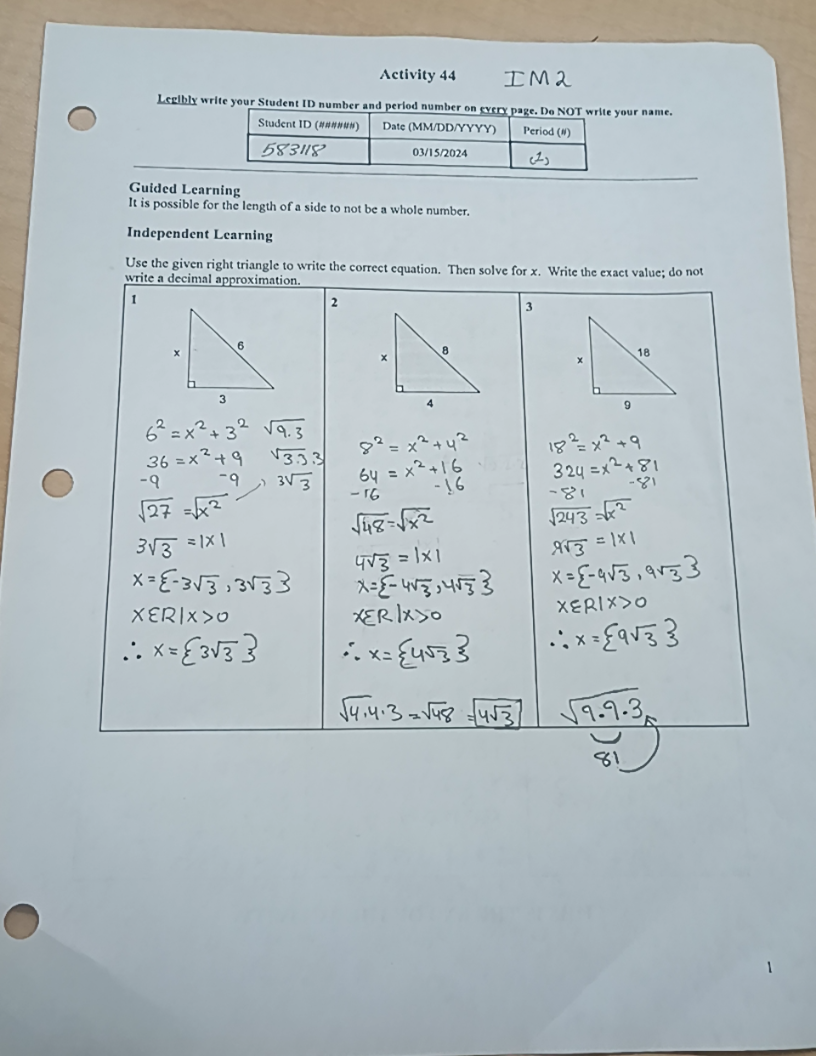 Activity 44 IM2
Legibly write your Student ID number and period number on every page. Do NOT write your name.
Student ID (######) Date (MM/DD/YYYY) Period (#)
583118 03/15/2024
Guided Learning
It is possible for the length of a side to not be a whole number.
Independent Learning
Use the given right triangle to write the correct equation. Then solve for x. Write the exact value; do not
write a decimal approximation.
1
x
6
3
6² = x² + 3² √9.3
36 = x² + 9 √3.3.3
-9 -9 3√3
√27 = √x²
3√3 = |x|
x = {-3√3, 3√3}
XεR|X>0
∴ x = {3√3}
2
x
8
4
8² = x² + 4²
64 = x² + 16
-16 -16
√48 = √x²
4√3 = |x|
x = {-4√3, 4√3}
XεR|X>0
∴ x = {4√3}
√4.4.3 = √48 = 4√3
3
x
18
9
18² = x² + 9
324 = x² + 81
-81 -81
√243 = √x²
9√3 = |x|
x = {-9√3, 9√3}
XεR|X>0
∴ x = {9√3}
√9.9.3
81
1